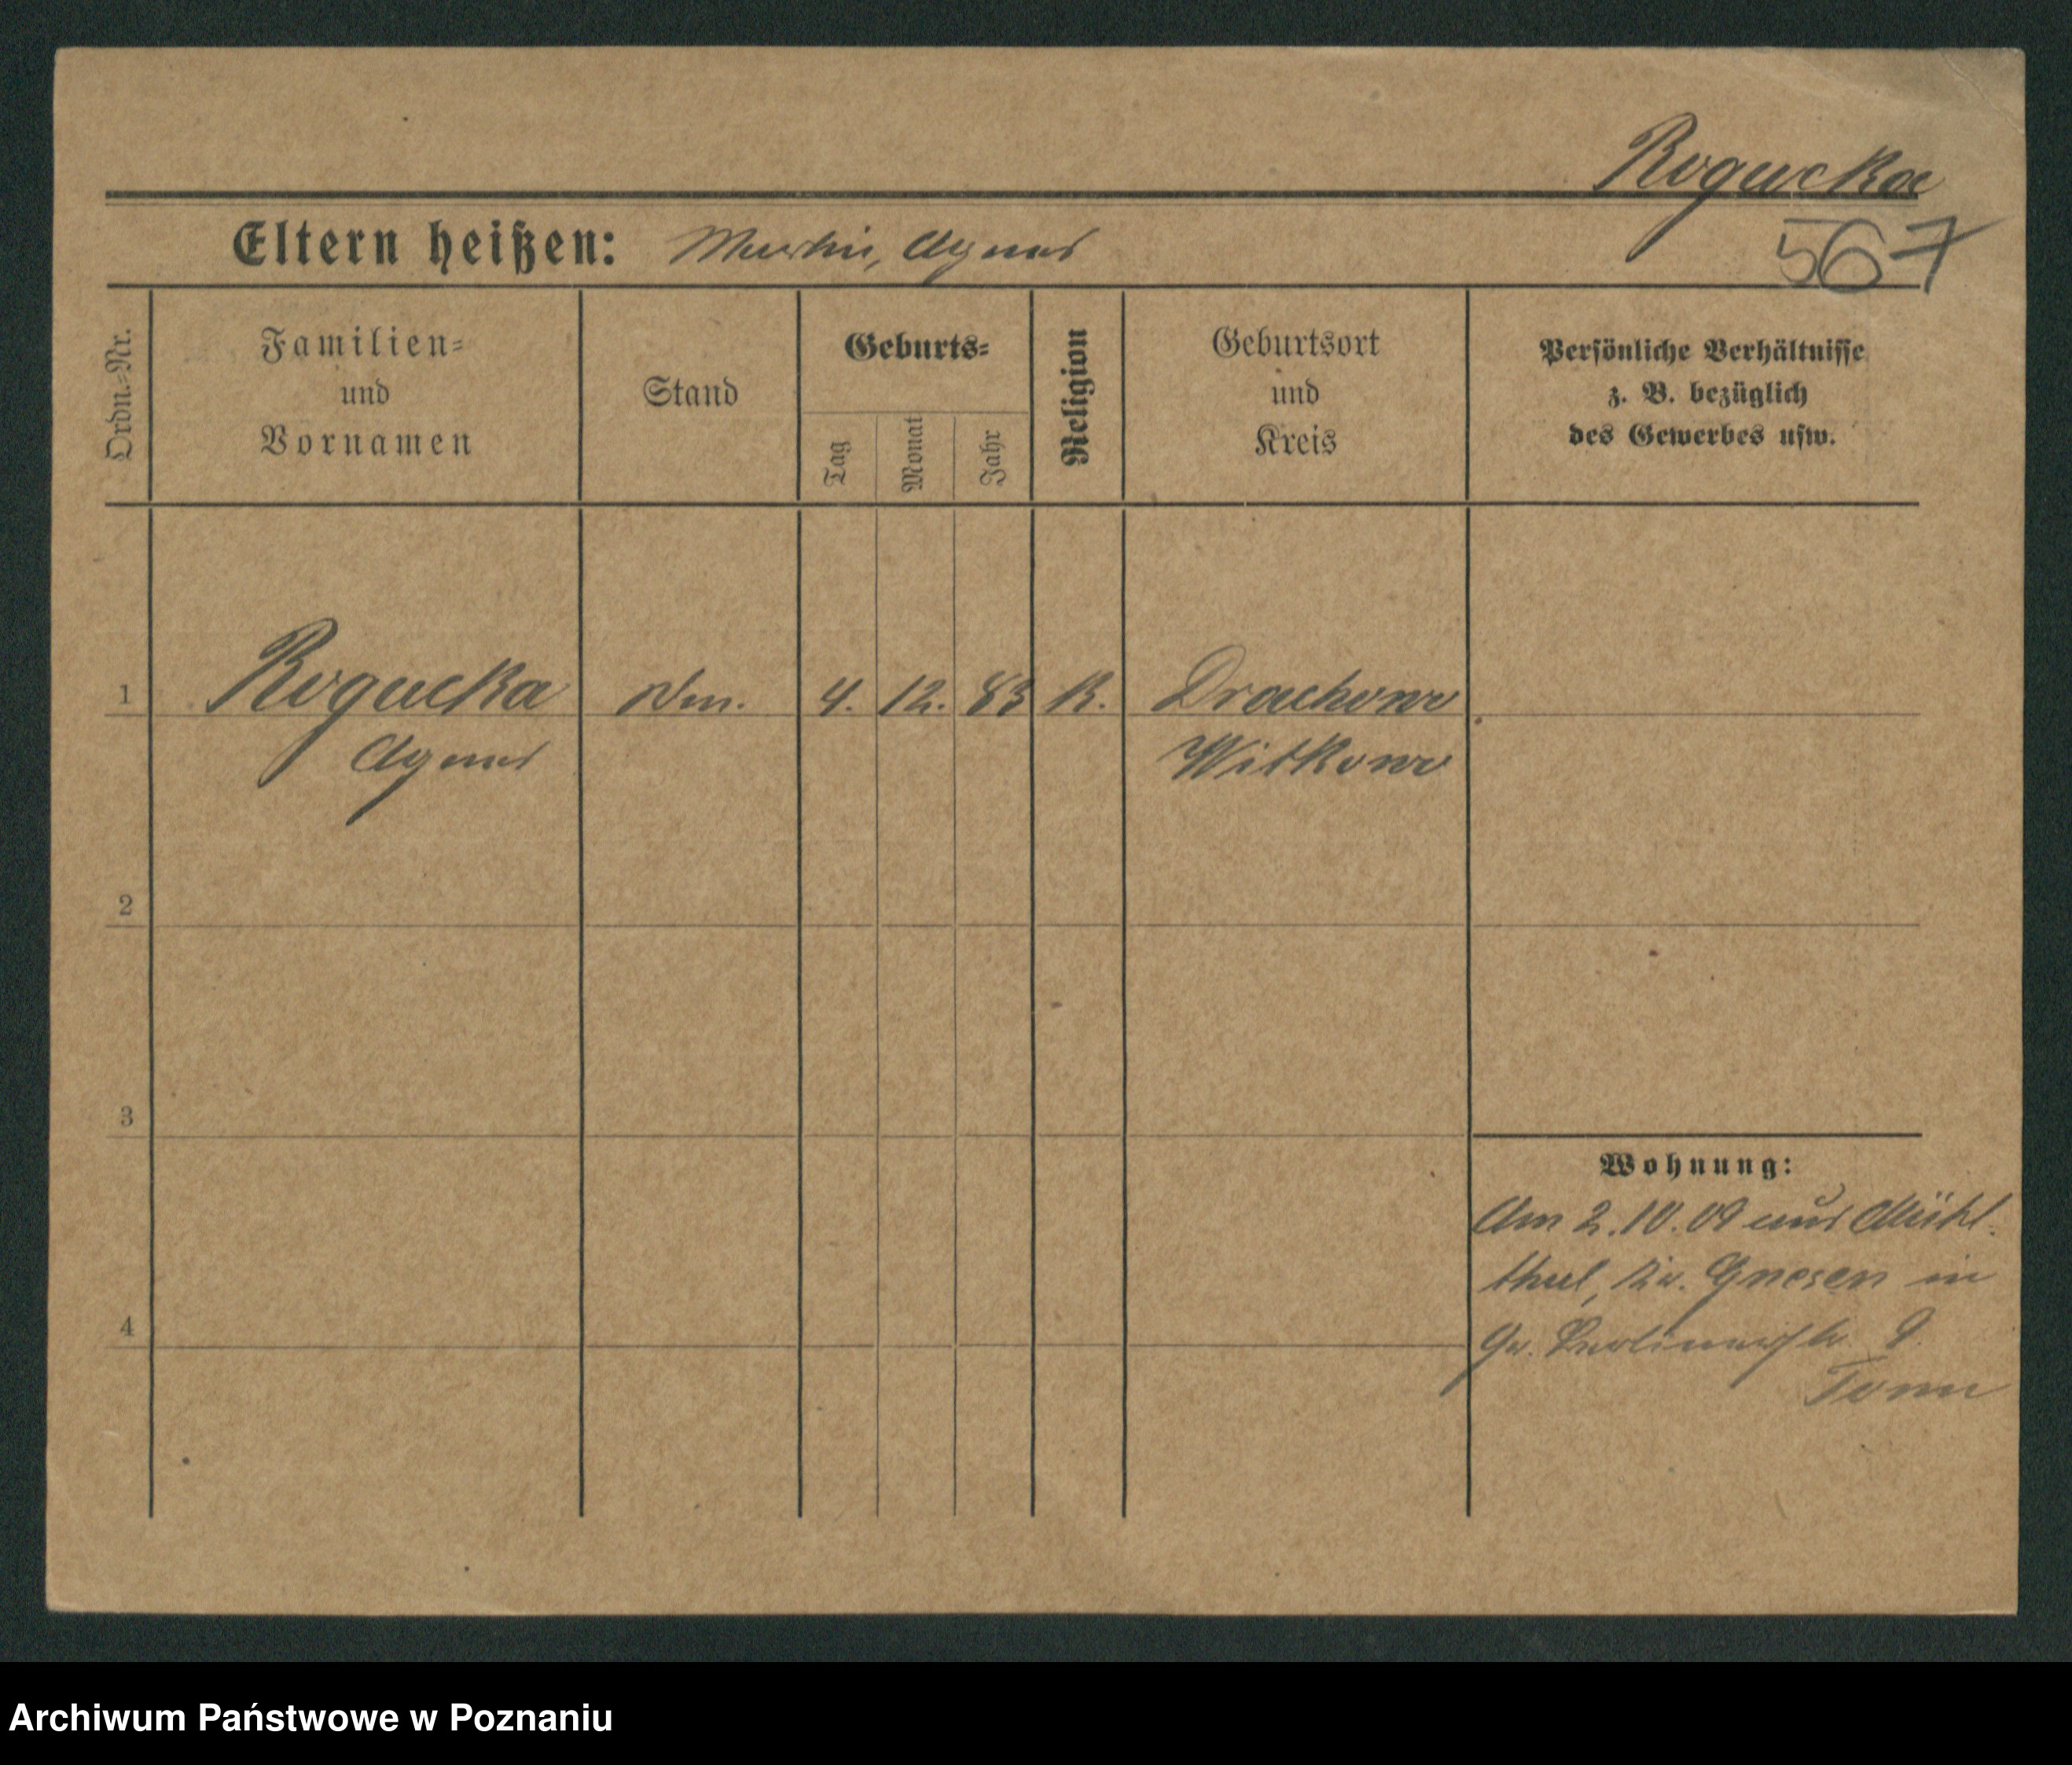 Rogucka
567
Eltern heißen: Martin, Agnes
Ordn.=Nr.
Familien=
und
Vornamen
Stand
Geburts=
Tag
Monat
Jahr
Religion
Geburtsort
und
Kreis
Persönliche Verhältnisse
z. B. bezüglich
des Gewerbes usw.
1 Rogucka 4. 12. 83 K. Drachowo
Agnes Witkowo
2
3
Wohnung:
Am 2.10.09 aus Mühl-
thal, Kr. Gnesen in
4
Gr. Berlinerstr. 9